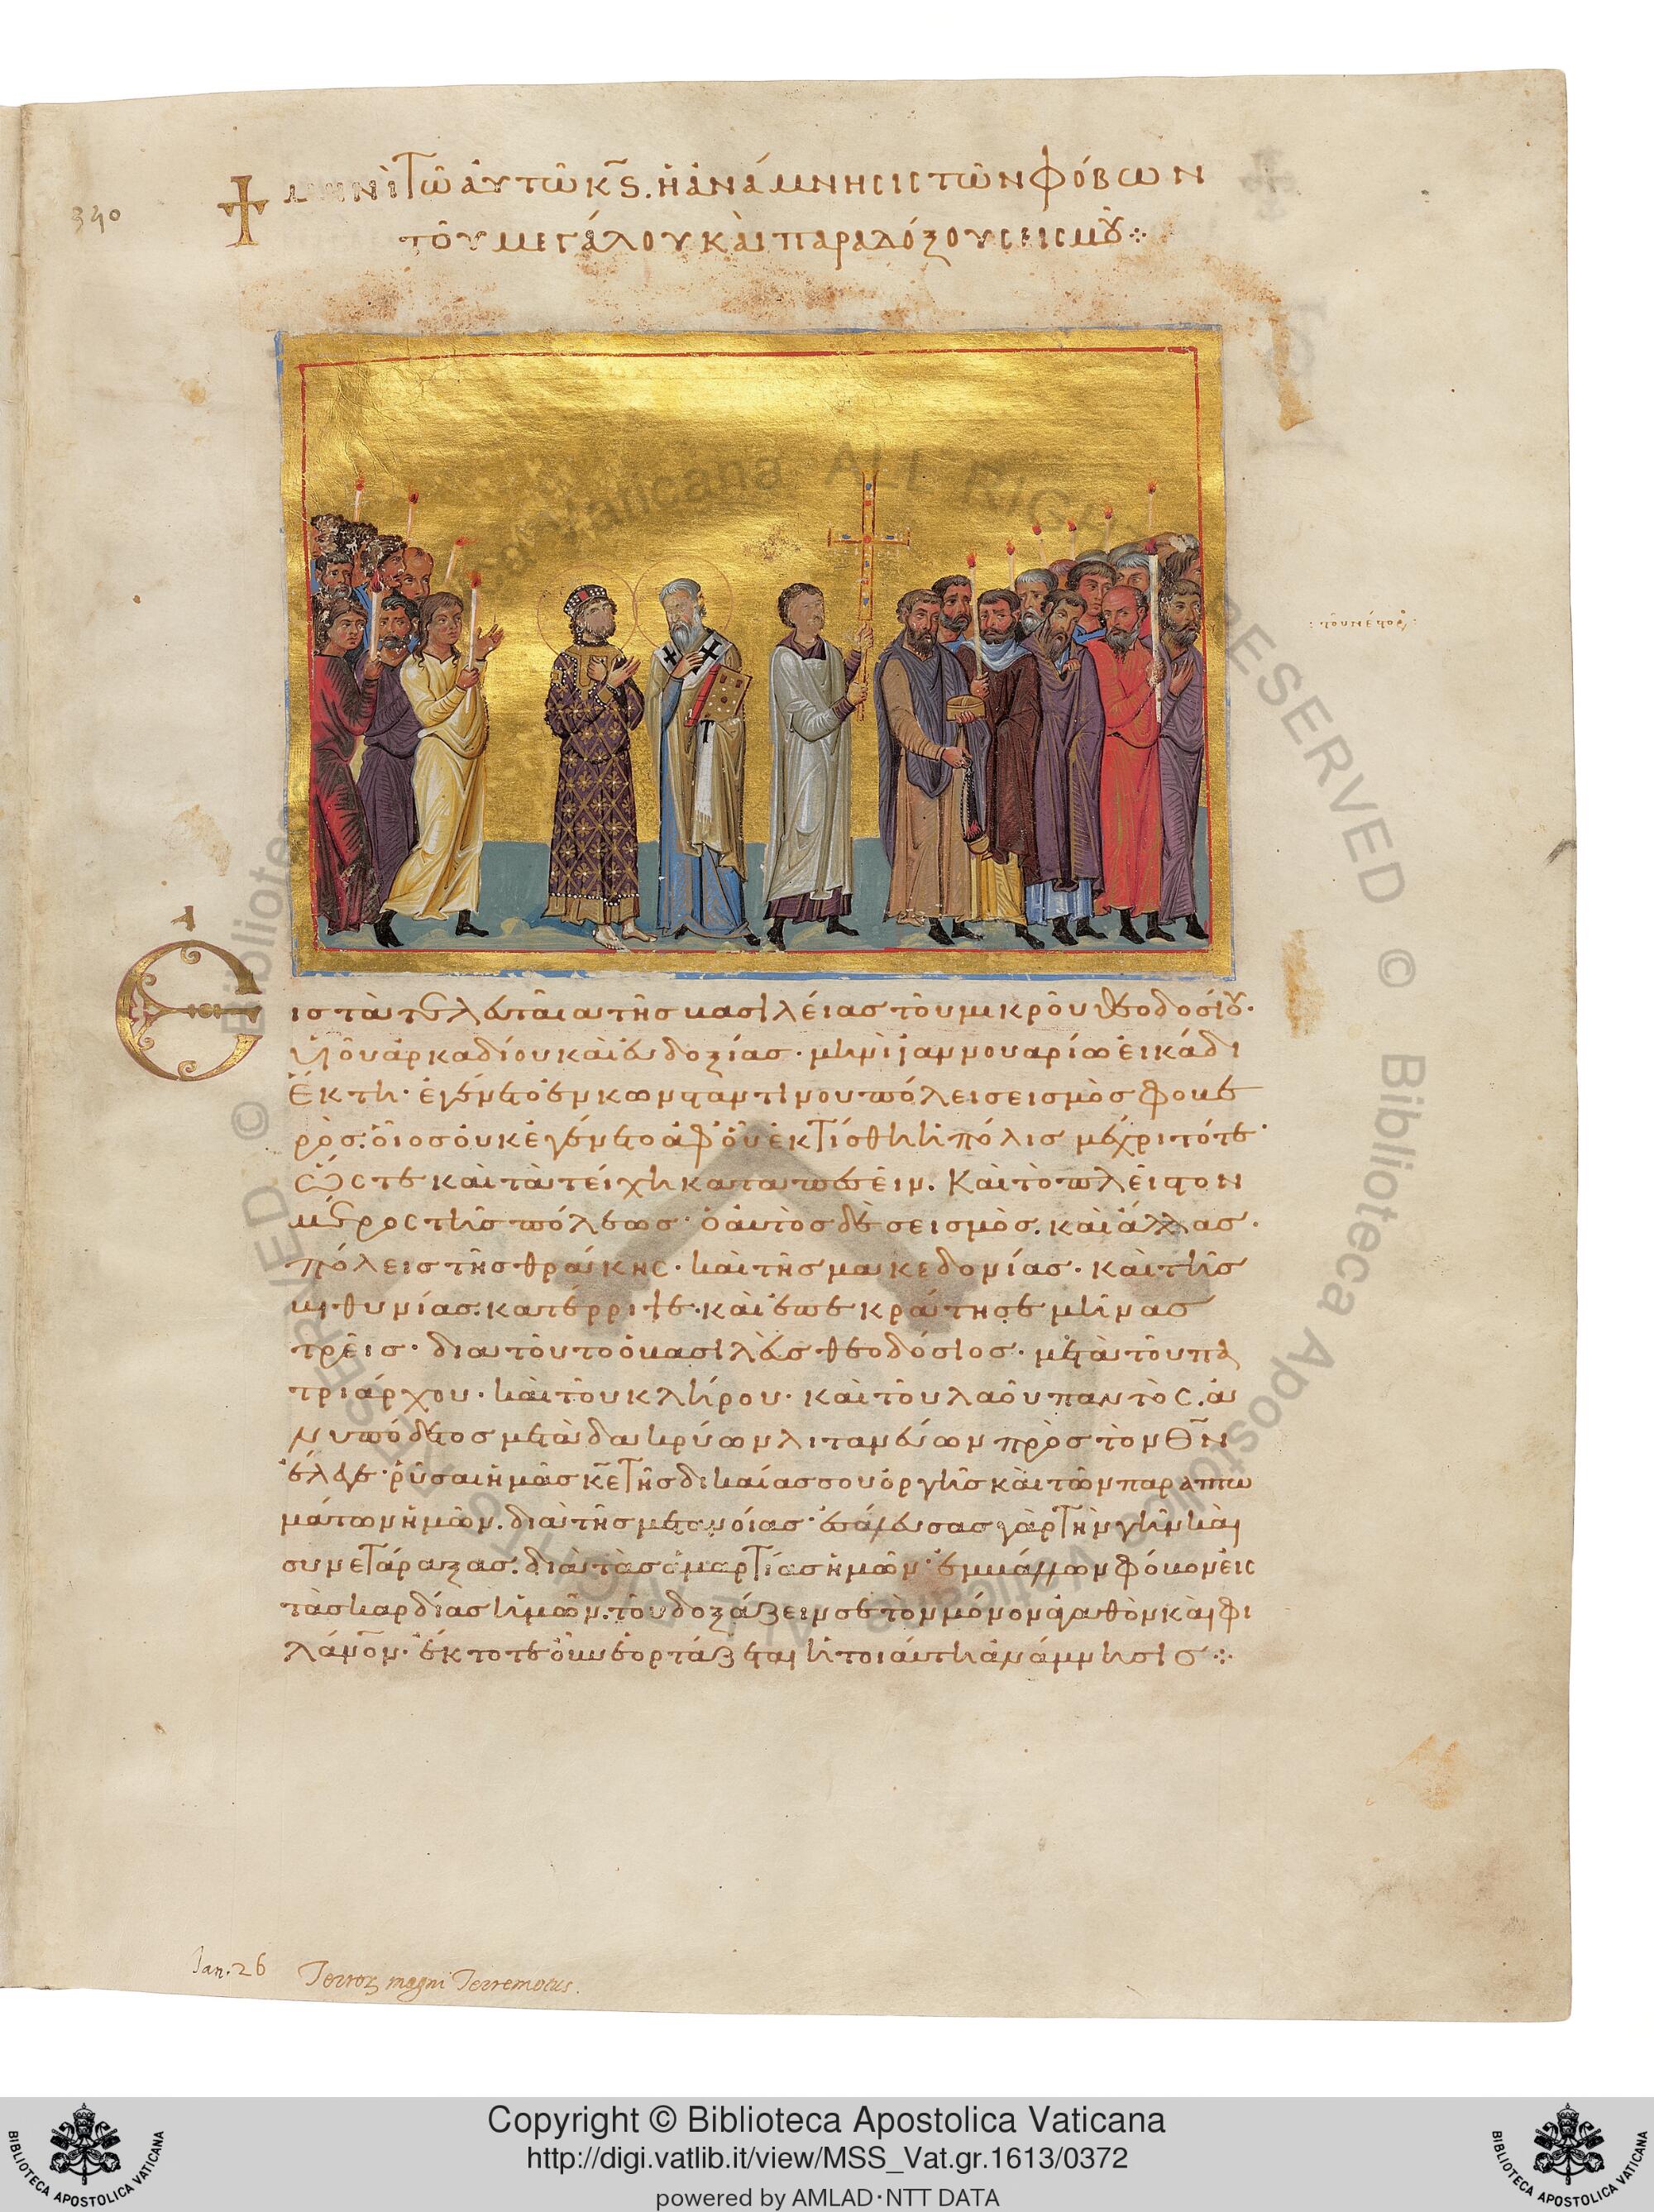 340
Μηνὶ τῷ αὐτῷ κς. ἡ ἀνάμνησις τῶν φόβων
τοῦ μεγάλου καὶ παραδόξου σεισμοῦ
: τοῦ Νέστορος :
Εἰς τὰ τελευταῖα τῆς βασιλείας τοῦ μικροῦ Θεοδοσίου·
υἱοῦ Ἀρκαδίου καὶ Εὐδοξίας· μηνὶ ἰαννουαρίω εἰκάδι
ἕκτη· ἐγένετο ἐν κωνσταντίνου πόλει σεισμὸς φοβε
ρὸς. οἷος οὐκ ἐγένετο ἀφ' οὗ ἐκτίσθη ἡ πόλις μέχρι τότε·
ὥστε καὶ τὰ τείχη καταπεσεῖν. Καὶ τὸ πλεῖστον
μέρος τῆς πόλεως· ὁ αὐτὸς δὲ σεισμὸς. καὶ ἄλλας·
πόλεις τῆς θράκης· καὶ τῆς μακεδονίας· καὶ τῆς
βιθυνίας. κατέρριψε· καὶ ἐπεκράτησε μῆνας
τρεῖς· διατοῦτο ὁ βασιλεὺς θεοδόσιος· μετὰ τοῦ πα
τριάρχου· καὶ τοῦ κλήρου· καὶ τοῦ λαοῦ παντὸς. ἀ
νυπόδετος μετὰ δακρύων λιτανεύων πρὸς τὸν Θν
ἔλεγε· ῥῦσαι ἡμᾶς κε τῆς δικαίας σου ὀργῆς καὶ τῶν παραπτω
μάτων ἡμῶν. διὰ τῆς μετανοίας· ἐσάλευσας γὰρ τὴν γῆν καὶ
συνετάραξας. διὰ τὰς ἁμαρτίας ἡμῶν· ἐμβάλλων φόβον εἰς
τὰς καρδίας ἡμῶν. τοῦ δοξάζειν σε τὸν μόνον ἀγαθὸν καὶ φι
λάνον· ἐκ τοτε οὖν ἑορτάζεται ἡ τοιαύτη ἀνάμνησις
Jan. 26 Terror magni Terremotus.
ALL RIGHTS RESERVED © Biblioteca Apostolica Vaticana
Copyright © Biblioteca Apostolica Vaticana
http://digi.vatlib.it/view/MSS_Vat.gr.1613/0372
powered by AMLAD·NTT DATA
BIBLIOTECA APOSTOLICA VATICANA
BIBLIOTECA APOSTOLICA VATICANA